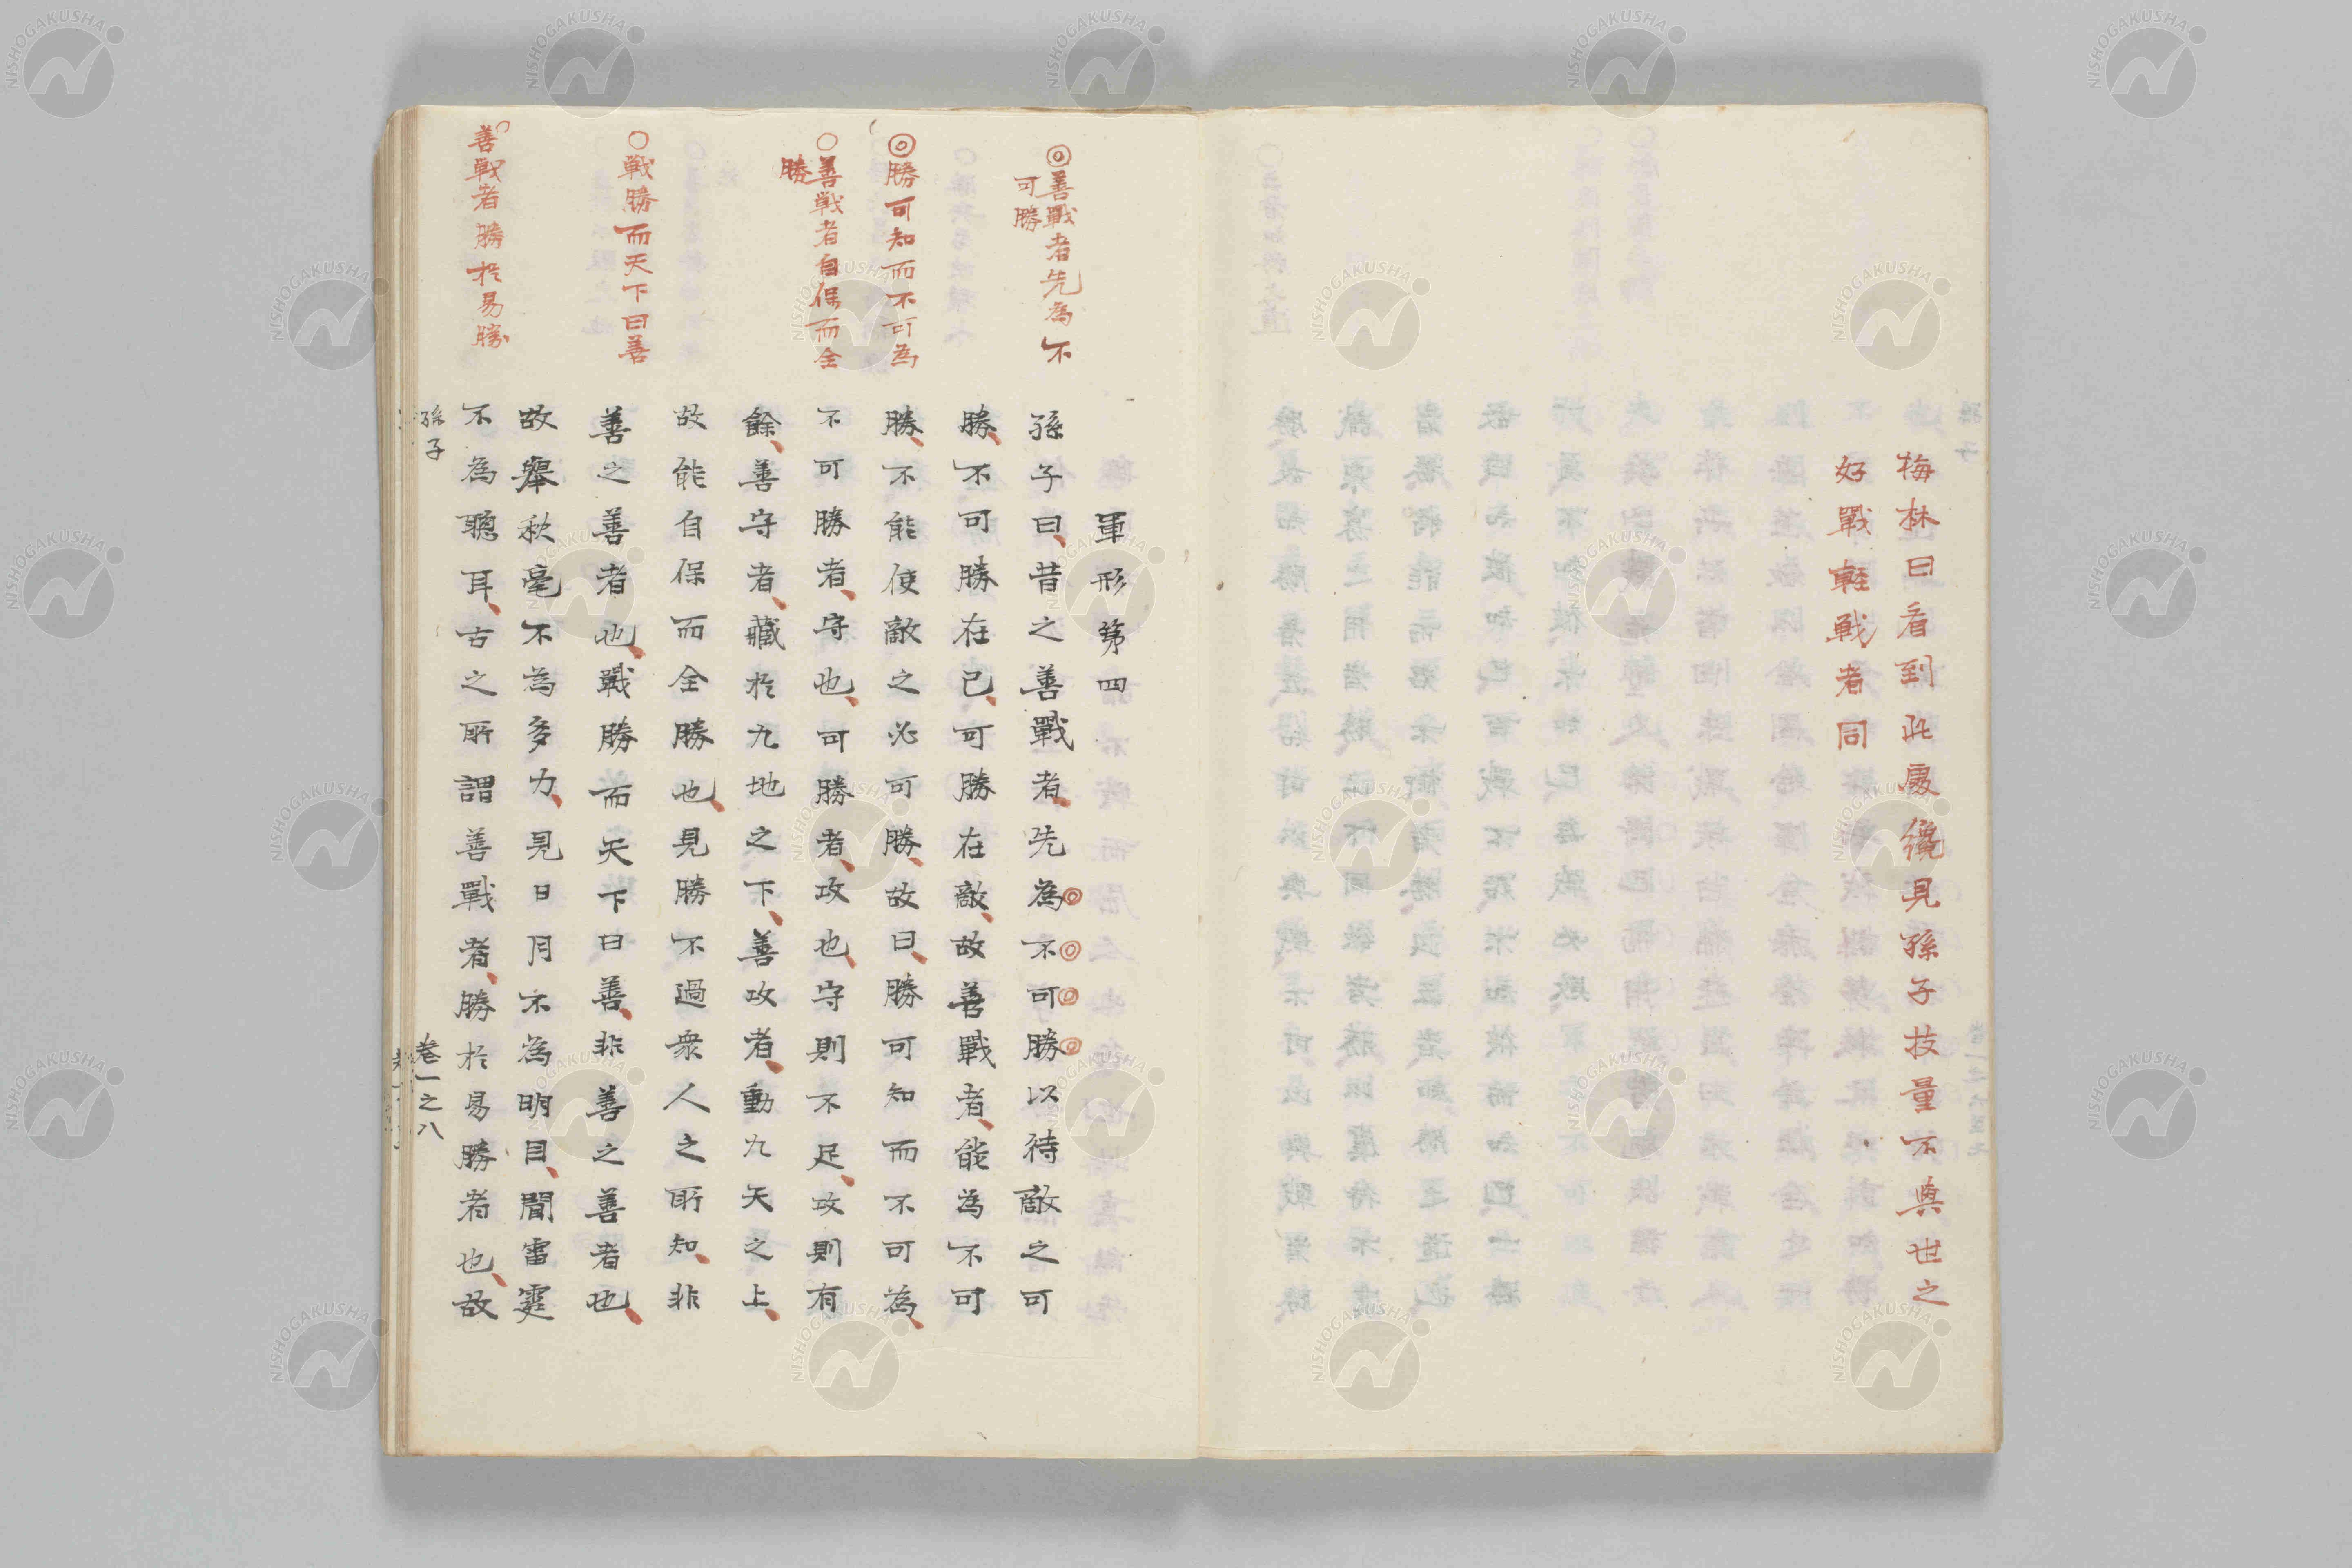 梅林曰看到此處纔見孫子技量不與世之
好戰輕戰者同
軍形第四
孫子曰、昔之善戰者、先為不可勝以待敵之可
勝、不可勝在已、可勝在敵、故善戰者、能為不可
勝、不能使敵之必可勝、故曰、勝可知而不可為、
不可勝者、守也、可勝者、攻也、守則不足、攻則有
餘、善守者、藏於九地之下、善攻者、動九天之上、
故能自保而全勝也、見勝不過衆人之所知、非
善之善者也、戰勝而天下曰善、非善之善者也、
故舉秋毫不為多力、見日月不為明目、聞雷霆
不為聰耳、古之所謂善戰者、勝於易勝者也、故
◎善戰者先為不
可勝
◎勝可知而不可為
○善戰者自保而全
勝
○戰勝而天下曰善
○善戰者勝於易勝
孫子
卷一之八
NISHOGAKUSHA